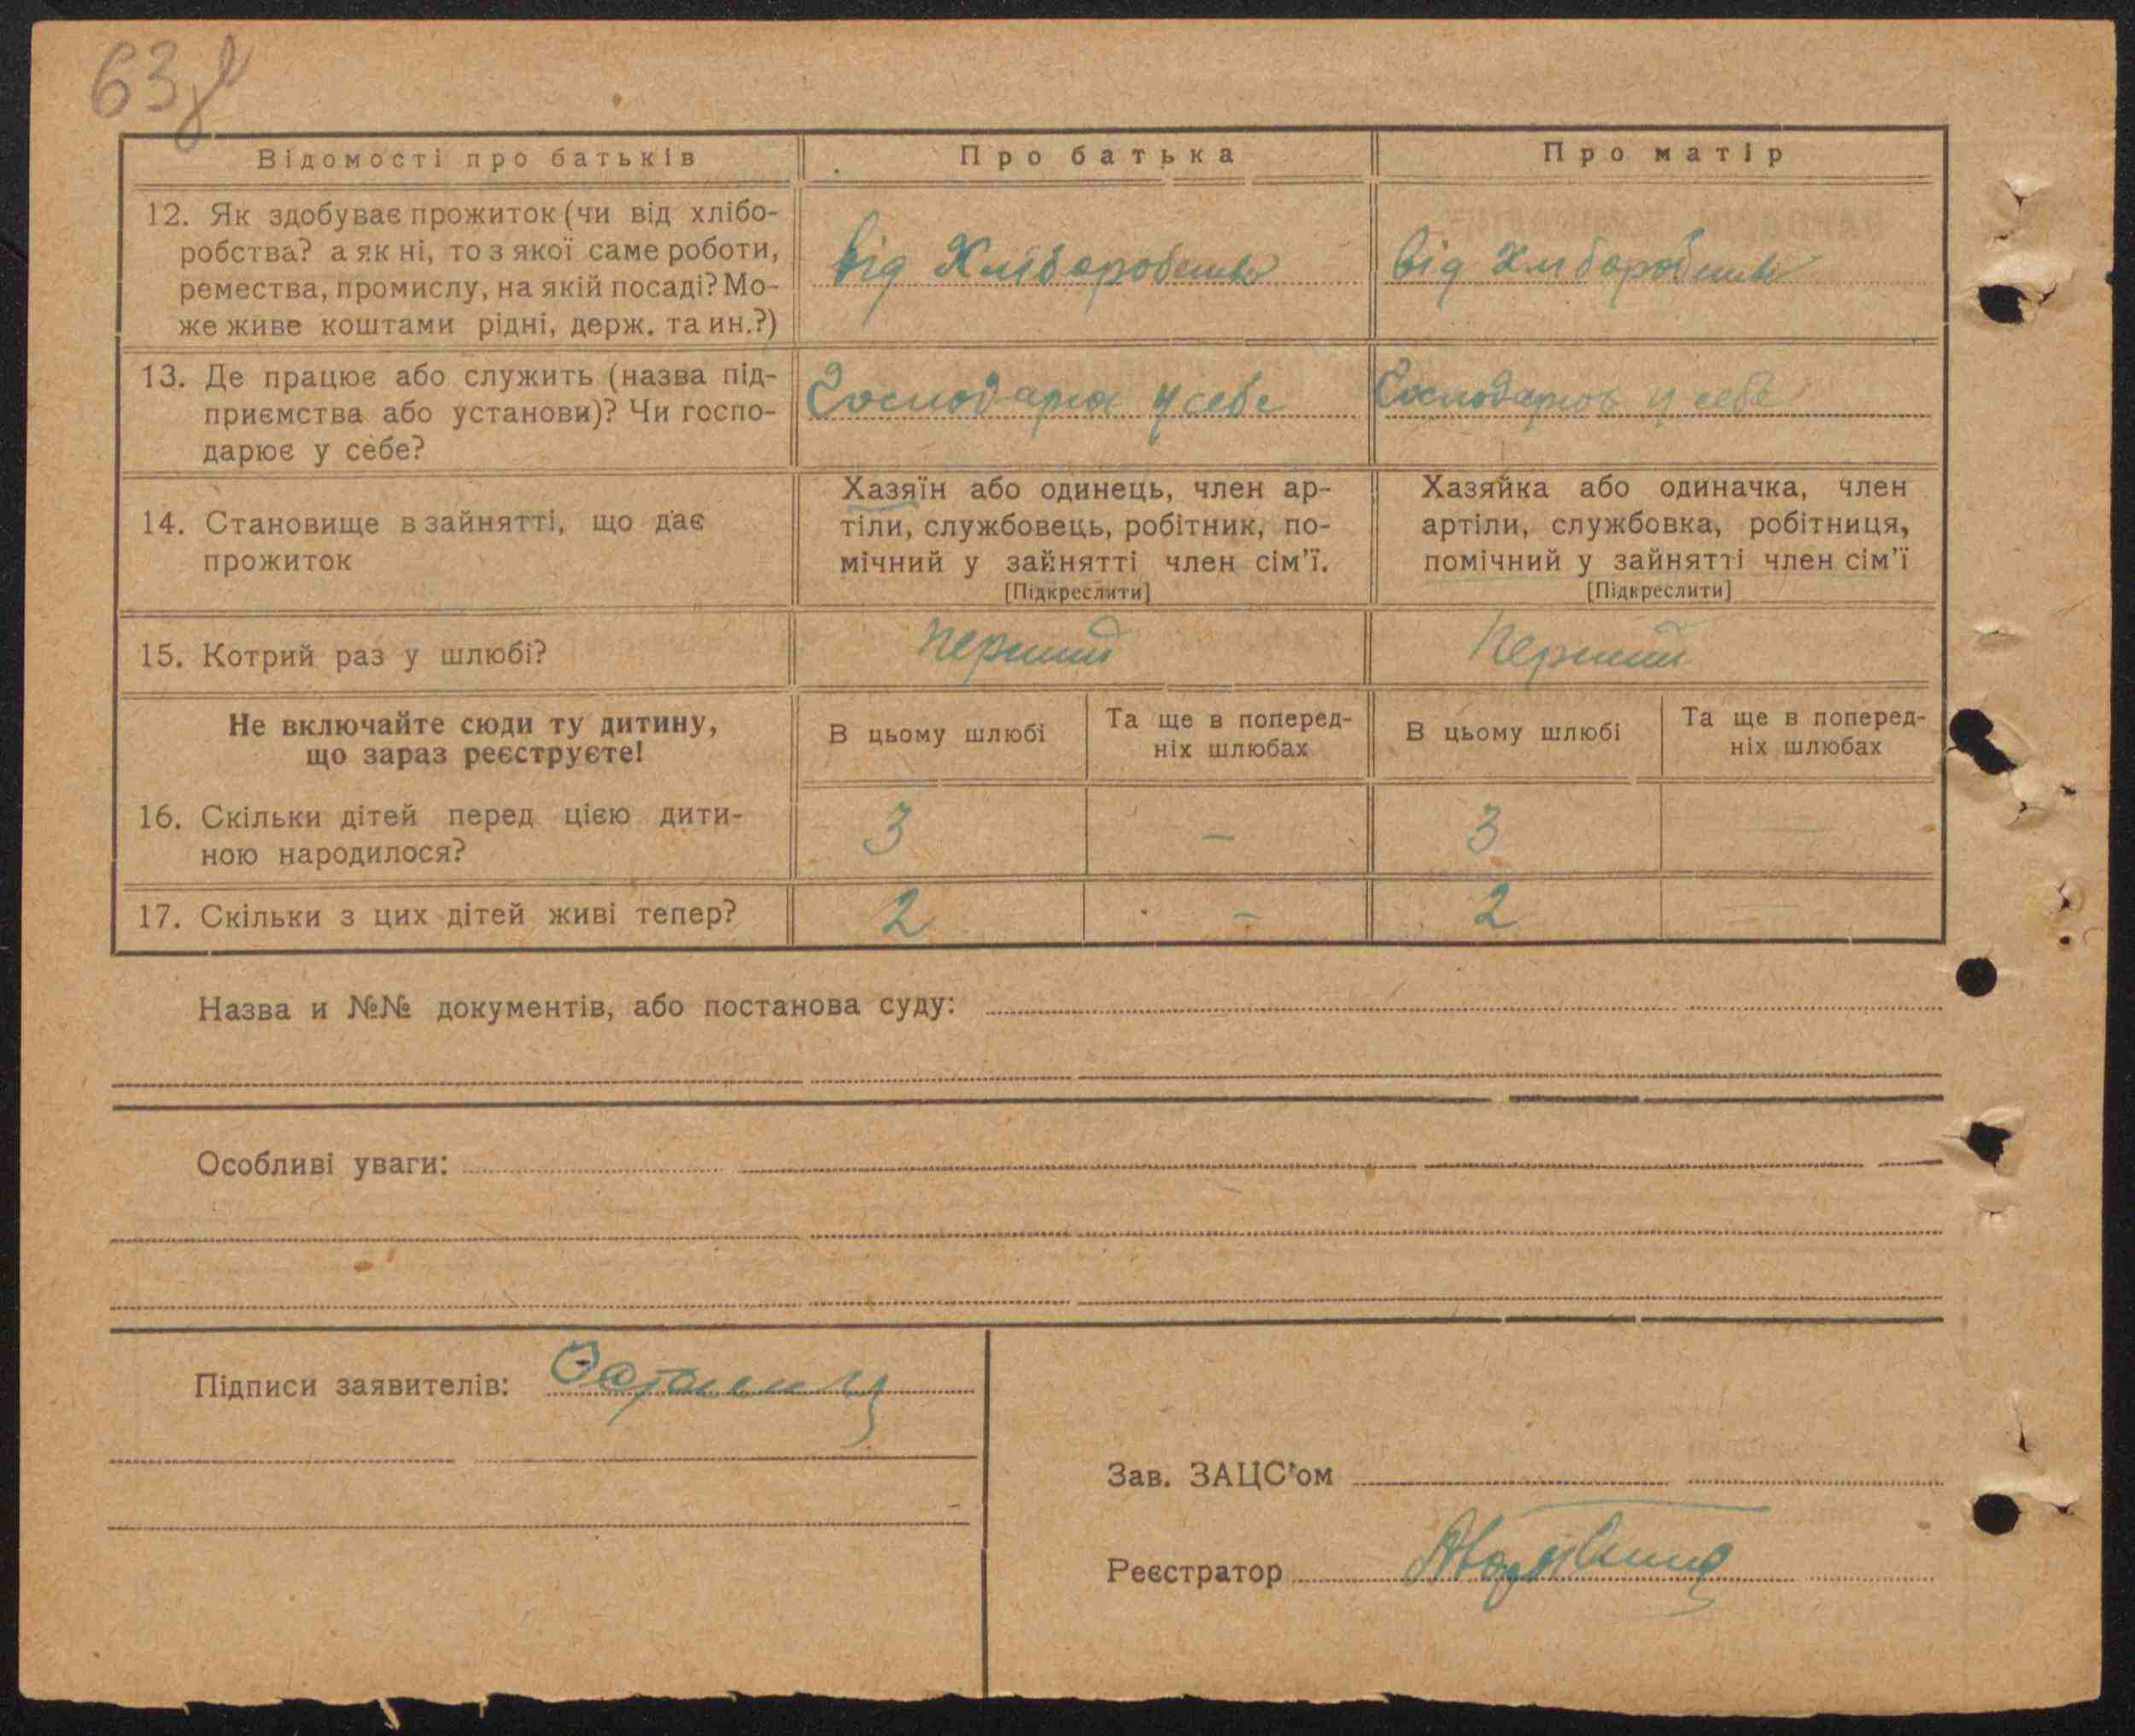 63
Відомості про батьків
Про батька
Про матір
12. Як здобуває прожиток (чи від хлібо-
робства? а як ні, то з якої саме роботи,
ремества, промислу, на якій посаді? Мо-
же живе коштами рідні, держ. та ин.?)
від Хліборобства
від Хліборобства
13. Де працює або служить (назва під-
приємства або установи)? Чи госпо-
дарює у себе?
Господарює у себе
Господарює у себе
14. Становище в зайнятті, що дає
прожиток
Хазяїн або одинець, член ар-
тіли, службовець, робітник, по-
мічний у зайнятті член сім'ї.
[Підкреслити]
Хазяйка або одиначка, член
артіли, службовка, робітниця,
помічний у зайнятті член сім'ї
[Підкреслити]
15. Котрий раз у шлюбі?
перший
перший
Не включайте сюди ту дитину,
що зараз реєструєте!
В цьому шлюбі
Та ще в поперед-
ніх шлюбах
В цьому шлюбі
Та ще в поперед-
ніх шлюбах
16. Скільки дітей перед цією дити-
ною народилося?
3 – 3 –
17. Скільки з цих дітей живі тепер?
2 – 2 –
Назва и №№ документів, або постанова суду:
Особливі уваги:
Підписи заявителів:
Зав. ЗАЦС'ом
Реєстратор